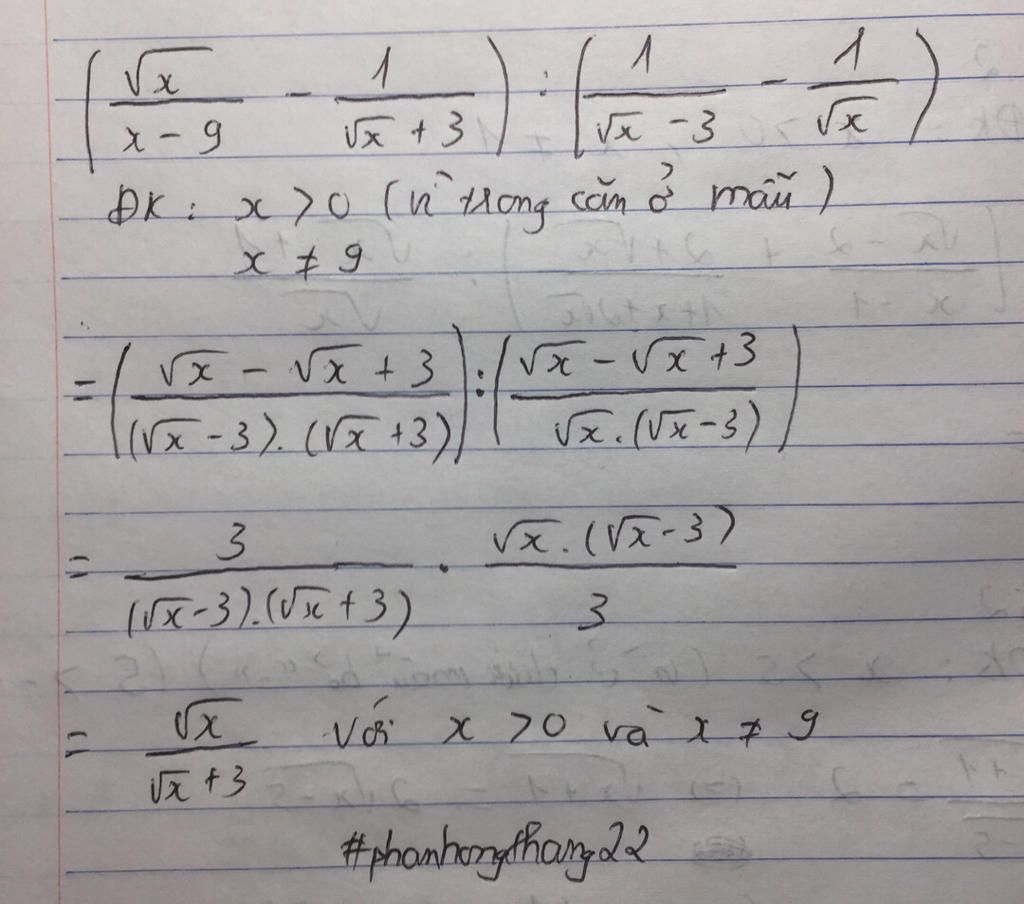 (√x / (x - 9) - 1 / (√x + 3)) : (1 / (√x - 3) - 1 / √x)
ĐK: x > 0 (vì trong căn ở mẫu)
x ≠ 9
= ((√x - √x + 3) / ((√x - 3).(√x + 3))) : ((√x - √x + 3) / (√x.(√x - 3)))
= 3 / ((√x - 3).(√x + 3)) . (√x.(√x - 3)) / 3
= √x / (√x + 3) với x > 0 và x ≠ 9
#phanhongthang22